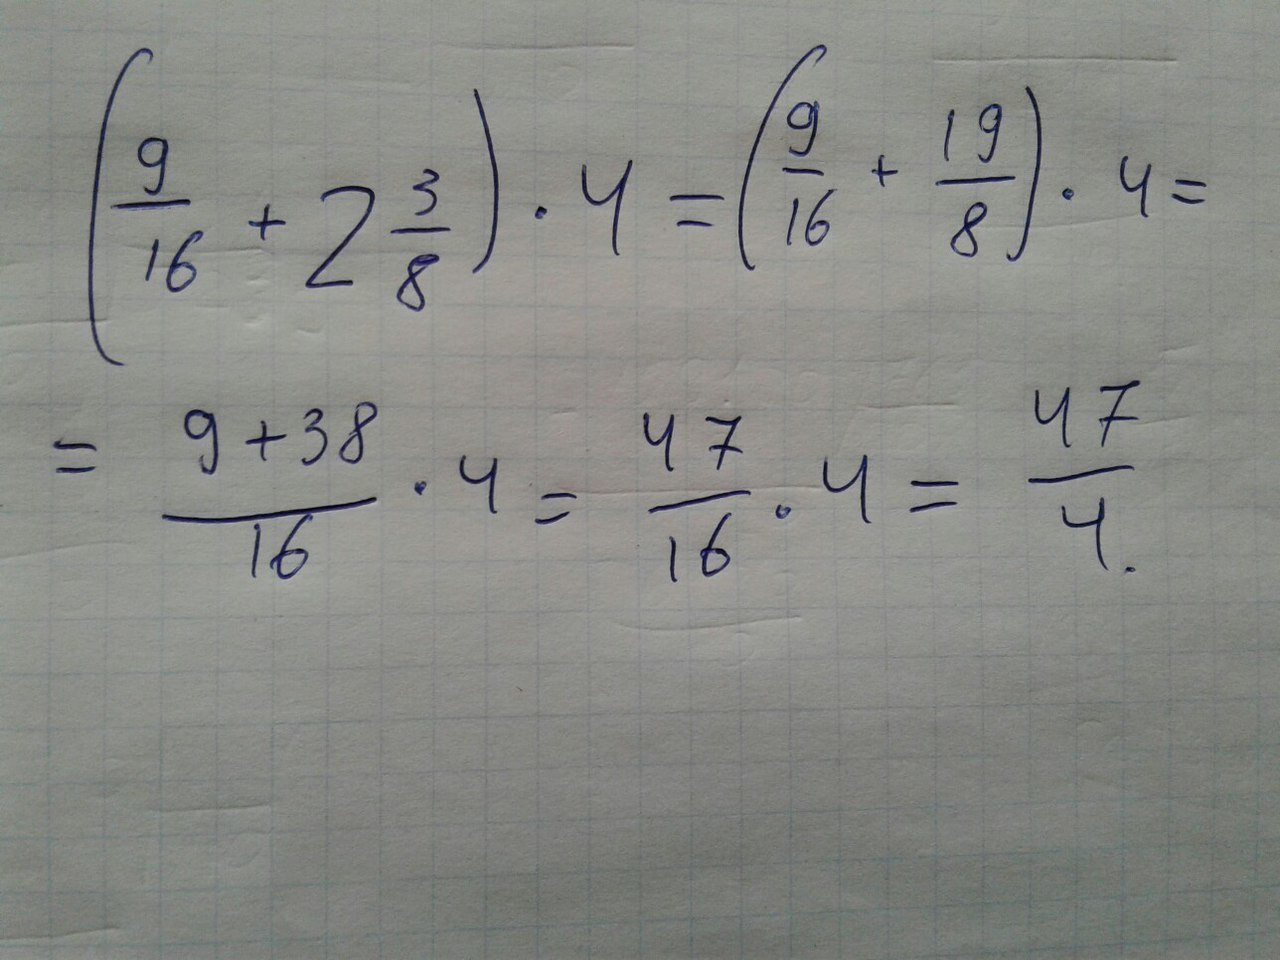 (9/16 + 2 3/8) · 4 = (9/16 + 19/8) · 4 =
= (9+38)/16 · 4 = 47/16 · 4 = 47/4.